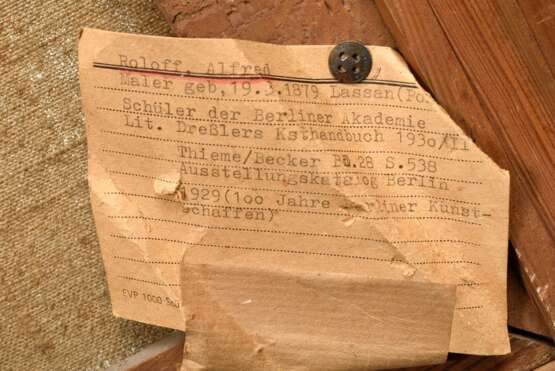 Roloff, Alfred
Maler geb,19.3.1879 Lassan(Po.
Schüler der Berliner Akademie
Lit. Dreßlers Ksthandbuch 193o/II
Thieme/Becker Bd.28 S.538
Ausstellungskatalog Berlin
1929(1oo Jahre Berliner Kunst-
schaffen)
EVP 1000